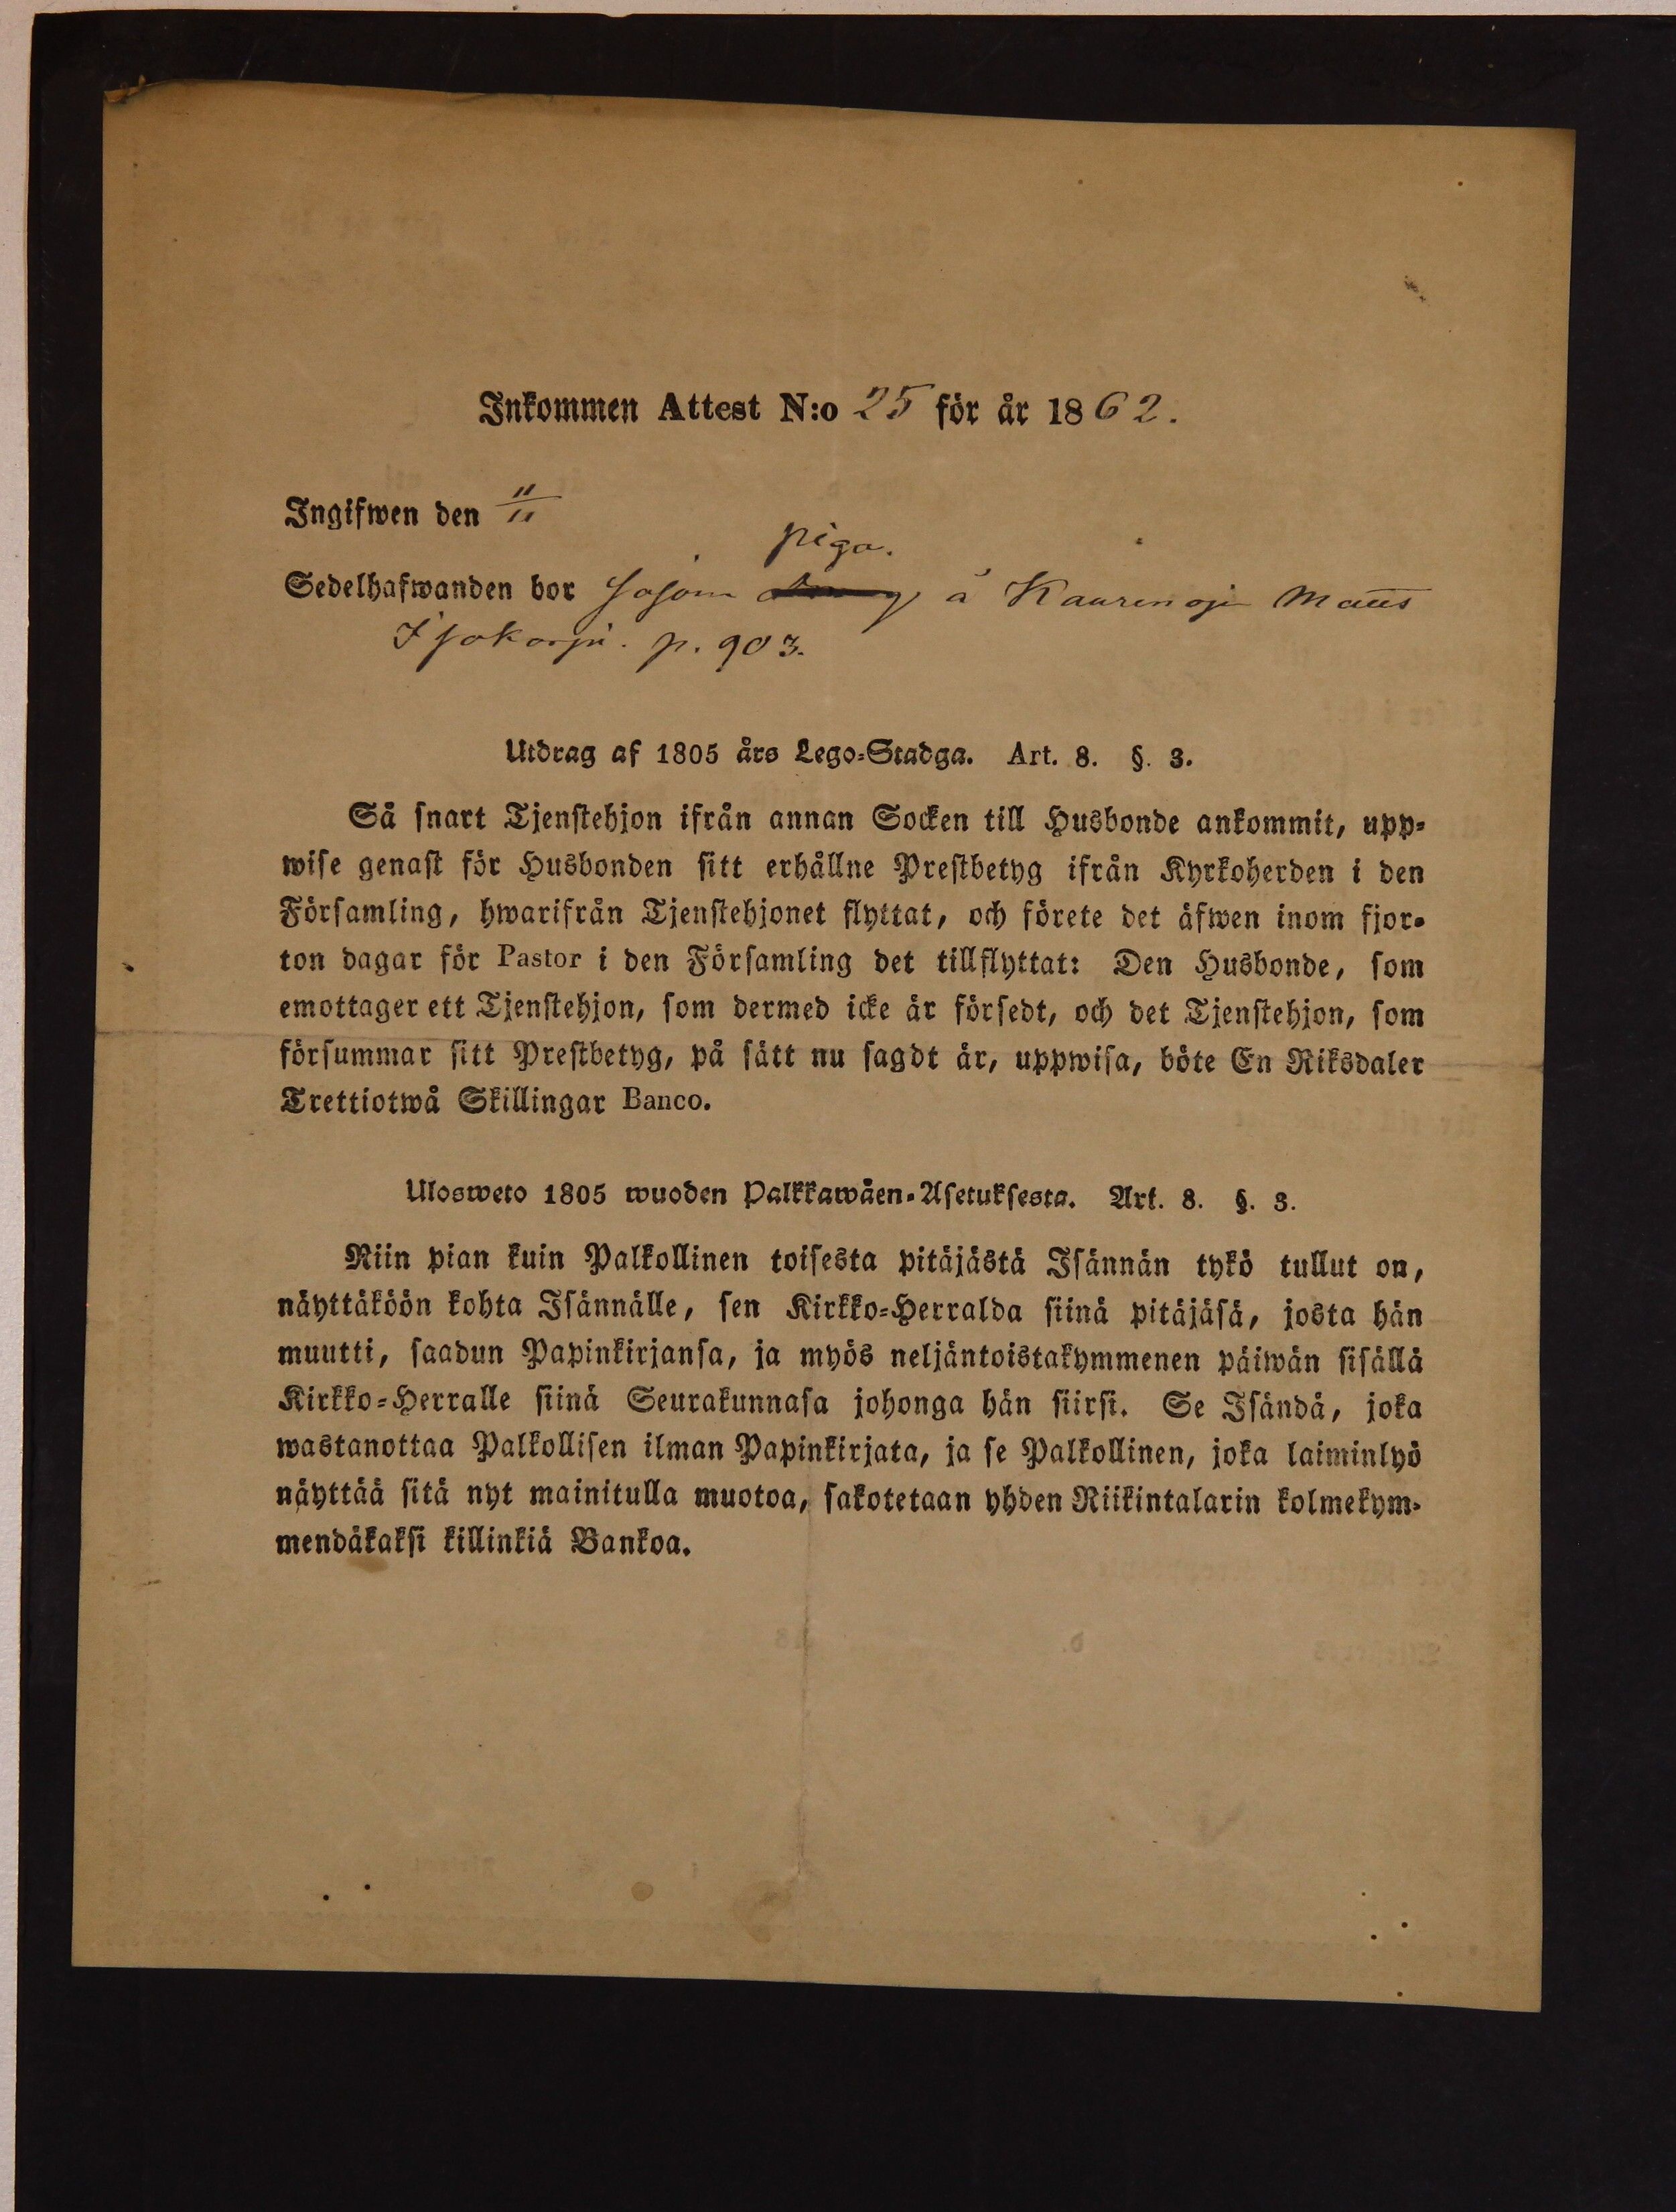 Inkommen Attest N:o 25 för år 1862.
Ingifwen den 11/11
piga.
Sedelhafwanden bor såsom å Kaurinoja Matts
Isokorpi. p. 903.
Utdrag af 1805 års Lego-Stadga. Art. 8. §. 3.
Så snart Tjenstehjon ifrån annan Socken till Husbonde ankommit, upp-
wise genast för Husbonden sitt erhållne Prestbetyg ifrån Kyrkoherden i den
Församling, hwarifrån Tjenstehjonet flyttat, och förete det äfwen inom fjor-
ton dagar för Pastor i den Församling det tillflyttat: Den Husbonde, som
emottager ett Tjenstehjon, som dermed icke är försedt, och det Tjenstehjon, som
försummar sitt Prestbetyg, på sätt nu sagdt är, uppwisa, böte En Riksdaler
Trettiotwå Skillingar Banco.
Ulosweto 1805 wuoden Palkkawäen-Asetuksesta. Art. 8. §. 3.
Niin pian kuin Palkollinen toisesta pitäjästä Isännän tykö tullut on,
näyttäköön kohta Isännälle, sen Kirkko-Herralda siinä pitäjäsä, josta hän
muutti, saadun Papinkirjansa, ja myös neljäntoistakymmenen päiwän sisällä
Kirkko-Herralle siinä Seurakunnasa johonga hän siirsi. Se Isändä, joka
wastanottaa Palkollisen ilman Papinkirjata, ja se Palkollinen, joka laiminlyö
näyttää sitä nyt mainitulla muotoa, sakotetaan yhden Riikintalarin kolmekym-
mendäkaksi killinkiä Bankoa.